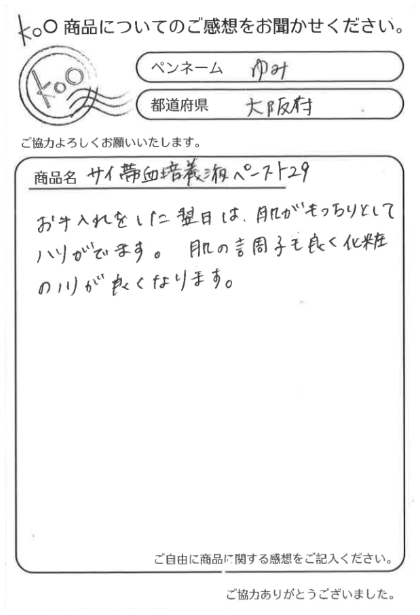 koo 商品についてのご感想をお聞かせください。
koo
ペンネーム ゆみ
都道府県 大阪府
ご協力よろしくお願いいたします。
商品名 サイ帯血培養液ペースト29
お手入れをした翌日は、肌がもっちりとして
ハリがでます。 肌の調子も良く化粧
のノリが良くなります。
ご自由に商品に関する感想をご記入ください。
ご協力ありがとうございました。